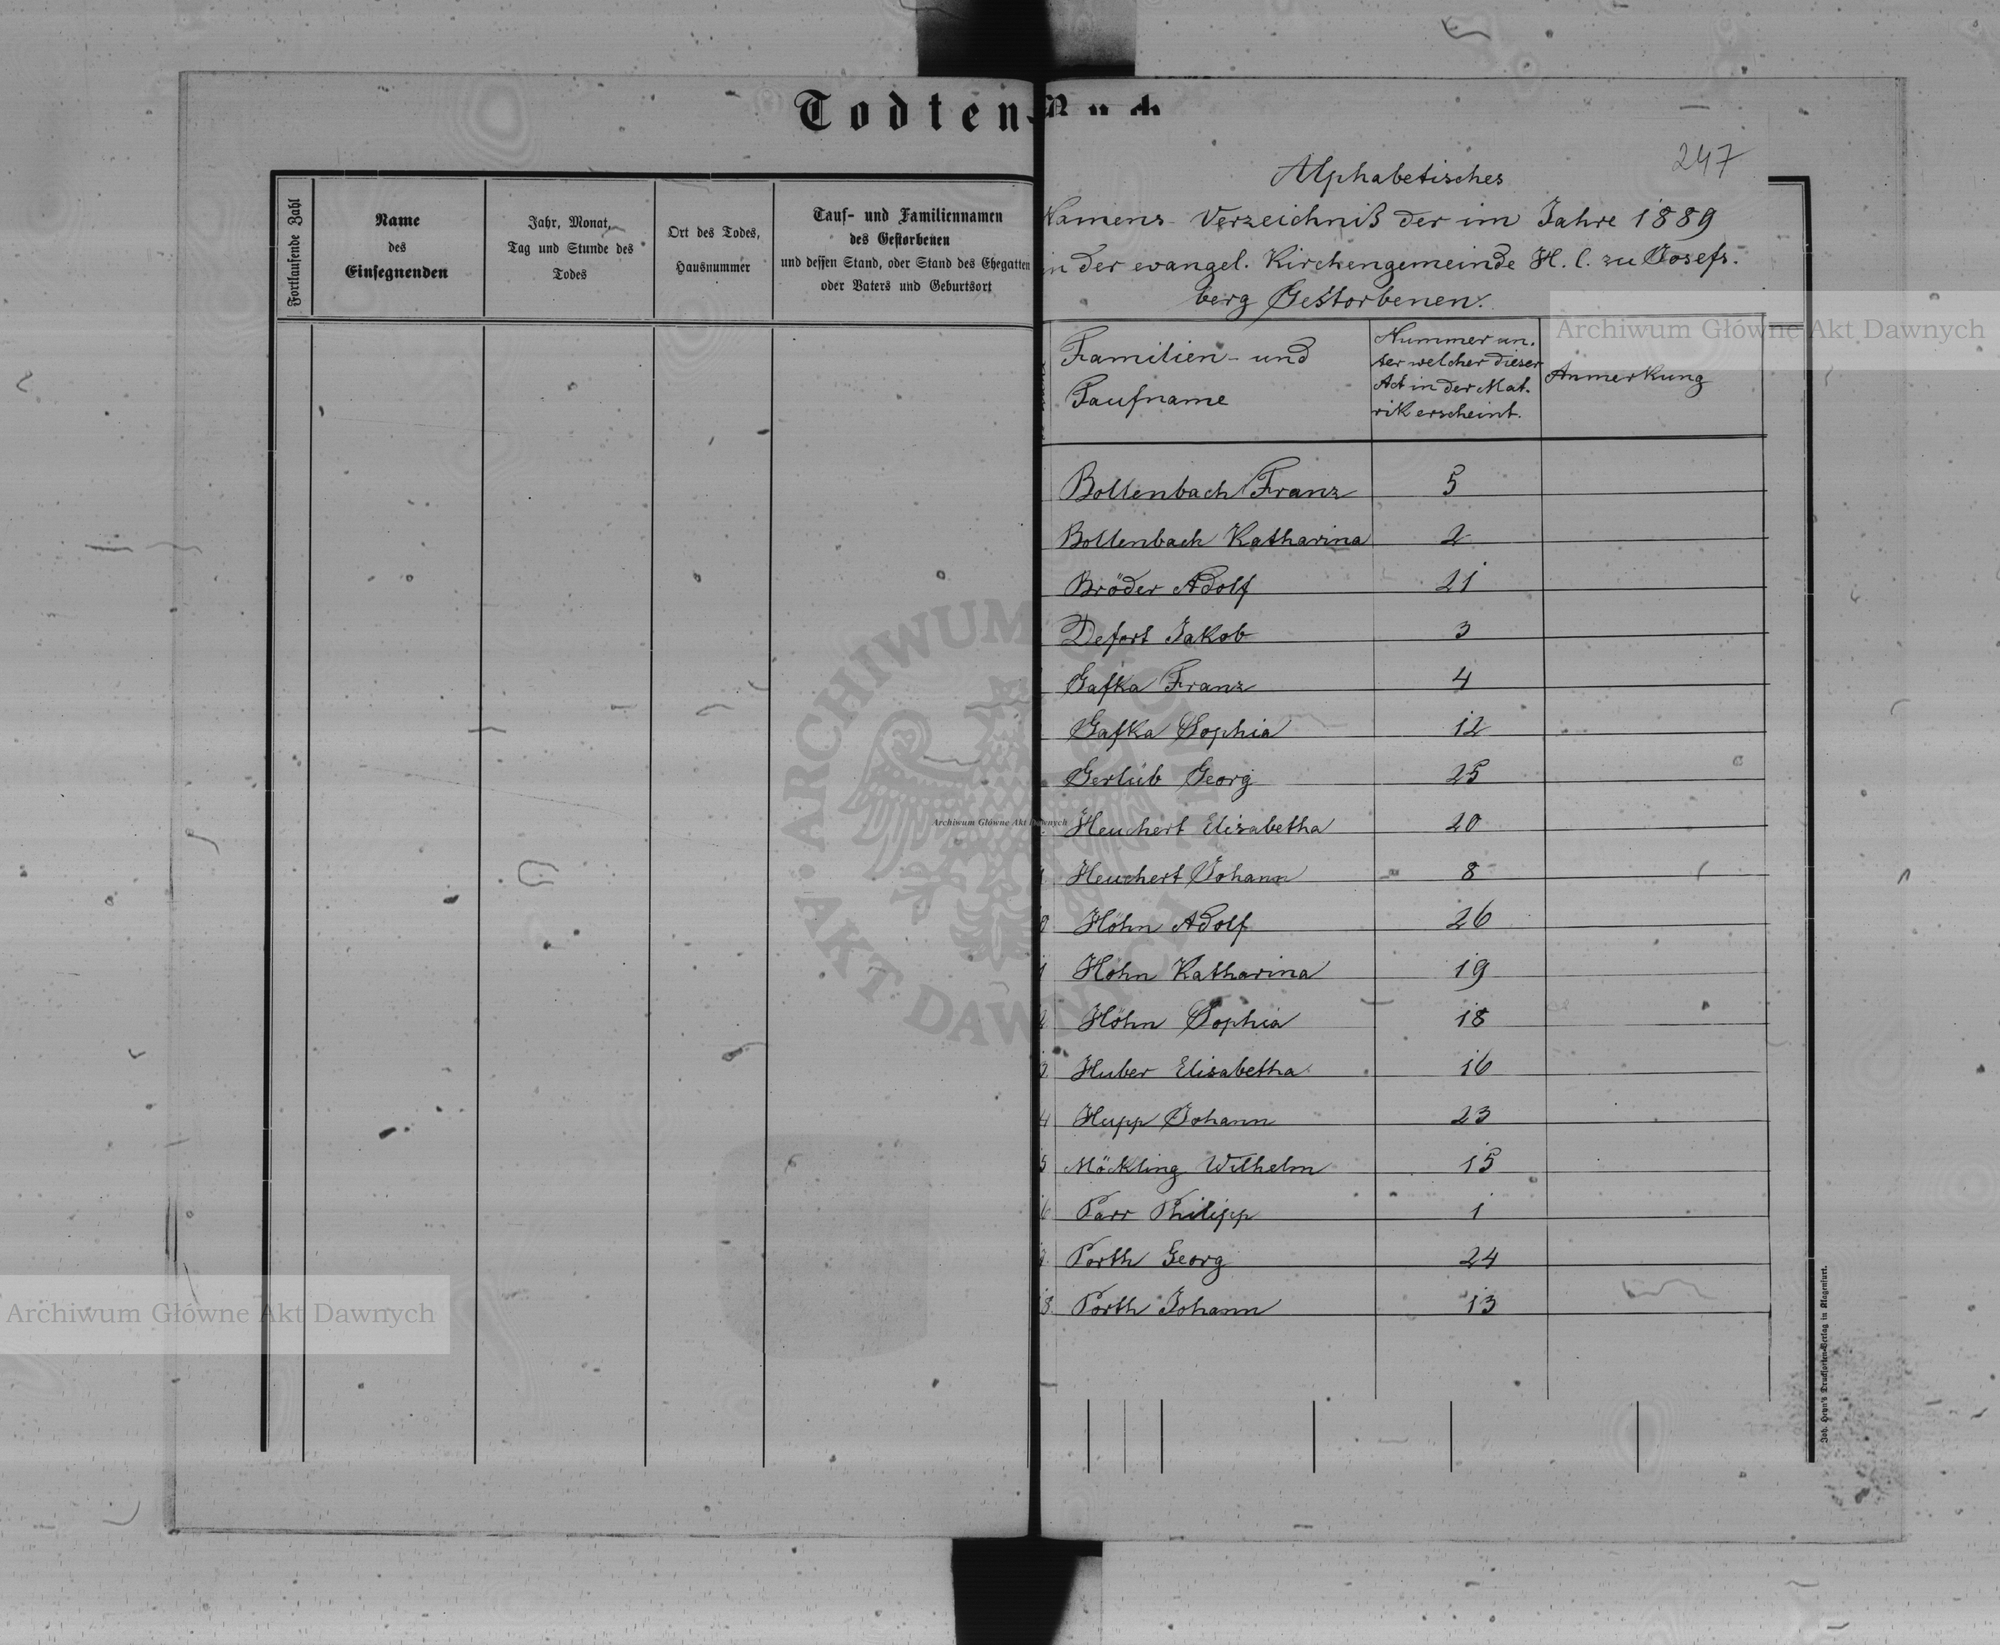 Todten-Buch
247
Fortlaufende Zahl
Name
des
Einsegnenden
Jahr, Monat,
Tag und Stunde des
Todes
Ort des Todes,
Hausnummer
Tauf- und Familiennamen
des Gestorbenen
und dessen Stand, oder Stand des Ehegatten
oder Vaters und Geburtsort
Alphabetisches
Namens-Verzeichniß der im Jahre 1889
in der evangel. Kirchengemeinde H. C. zu Josefs-
berg Gestorbenen.
Familien- und
Taufname
Nummer un-
ter welcher dieser
Act in der Mat-
rik erscheint.
Anmerkung
Bollenbach Franz 5
Bollenbach Katharina 2
Bröder Adolf 21
Defort Jakob 3
Gafka Franz 4
Gafka Sophia 12
Gerlib Georg 25
Heuchert Elisabetha 20
Heuchert Johann 8
Höhn Adolf 26
Höhn Katharina 19
Höhn Sophia 18
Huber Elisabetha 16
4 Hupp Johann 23
5 Möckling Wilhelm 15
6 Parr Philipp 1
Porth Georg 24
8. Porth Johann 13
Joh. Heyn's Drucksorten-Verlag in Klagenfurt.
Archiwum Główne Akt Dawnych
Archiwum Główne Akt Dawnych
Archiwum Główne Akt Dawnych
ARCHIWUM GŁÓWNE
AKT DAWNYCH